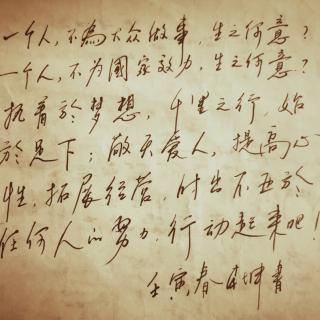 一个人，不為大众做事，生之何意？
一个人，不为國家效力，生之何意？
执着於梦想，千里之行，始
於足下；敬天爱人，提高心
性，拓展经营，付出不亚於
任何人的努力，行动起来吧！
壬寅春 書